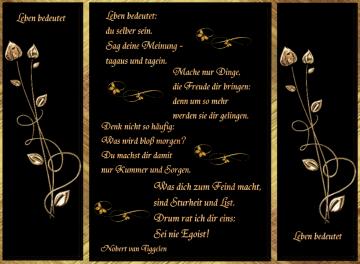 Leben bedeutet
Leben bedeutet:
du selber sein.
Sag deine Meinung -
tagaus und tagein.
Mache nur Dinge,
die Freude dir bringen:
denn um so mehr
werden sie dir gelingen.
Denk nicht so häufig:
Was wird bloß morgen?
Du machst dir damit
nur Kummer und Sorgen.
Was dich zum Feind macht,
sind Sturheit und List.
Drum rat ich dir eins:
Sei nie Egoist!
Nobert van Tiggelen
Leben bedeutet